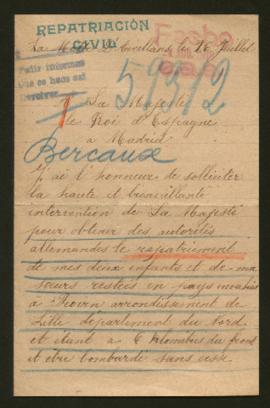 REPATRIACIÓN
CIVIL
La
le 26 Juillet
Pedir informes
que se haga así
Devolver
59312
A Sa Majesté
le Roi d'Espagne
a Madrid
Bercaux
J'ai l'honneur de solliciter
la haute et bienveillante
intervention de Sa Majesté
pour obtenir des autorités
allemandes le rapatriement
de mes deux enfants et de ma
sœurs restées en pays envahis
à arrondissement de
Lille département du Nord
et étant à 6 kilomètres du front
et être bombardé sans cesse